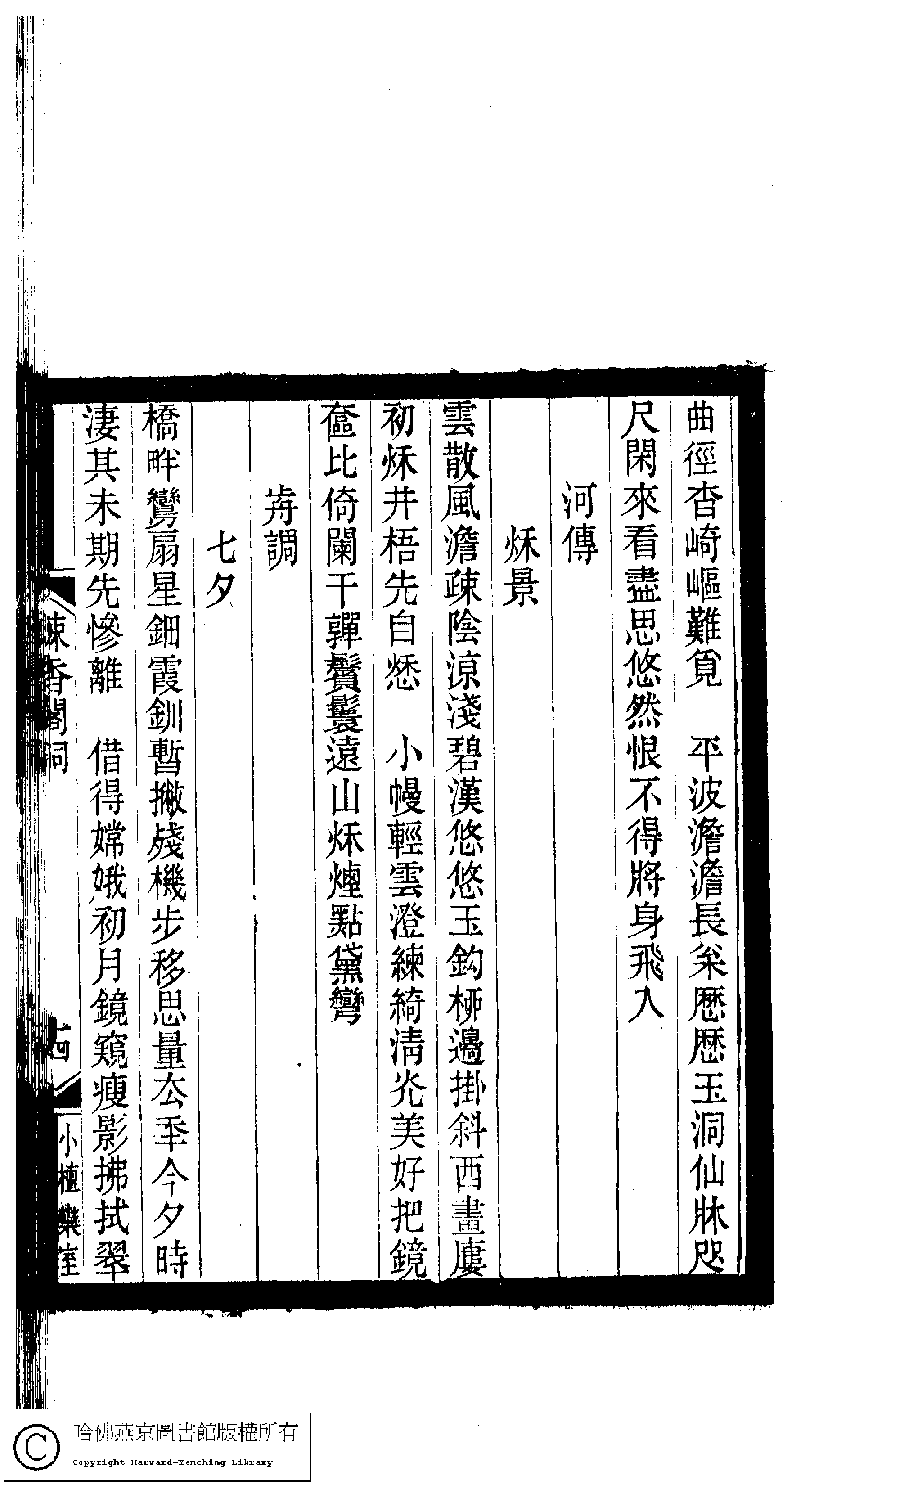 曲徑杳崎嶇難覓　平波澹澹長矣歷歷玉洞仙牀咫
尺閑來看盡思悠然恨不得將身飛入
河傳
秌景
雲散風澹疎陰涼淺碧漢悠悠玉鈎桺邊掛斜西畫廔
初秌井梧先自愁　小幔輕雲澄練綺淸光美好把鏡
奩比倚闌干嚲鬢鬟遠山秌煙點黛彎
歬調
七夕
橋畔鸞扇星鈿霞釧暫撇殘機步移思量厺年今夕時
淒其未期先慘離　借得嫦娥初月鏡窺瘦影拂拭翠
疎香閣詞
十四
小檀欒室
哈佛燕京圖書館版權所有
Copyright Harvard-Yenching Library